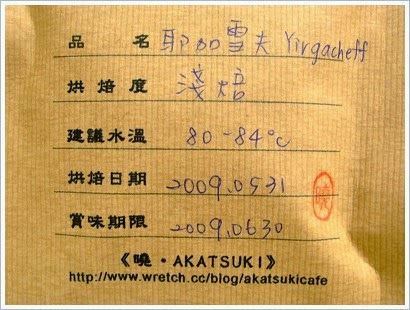 品 名 耶加雪夫 Yirgacheff
烘焙度 淺焙
建議水溫 80-84°C
烘焙日期 2009.0531
曉
賞味期限 2009.0630
《曉・AKATSUKI》
http://www.wretch.cc/blog/akatsukicafe